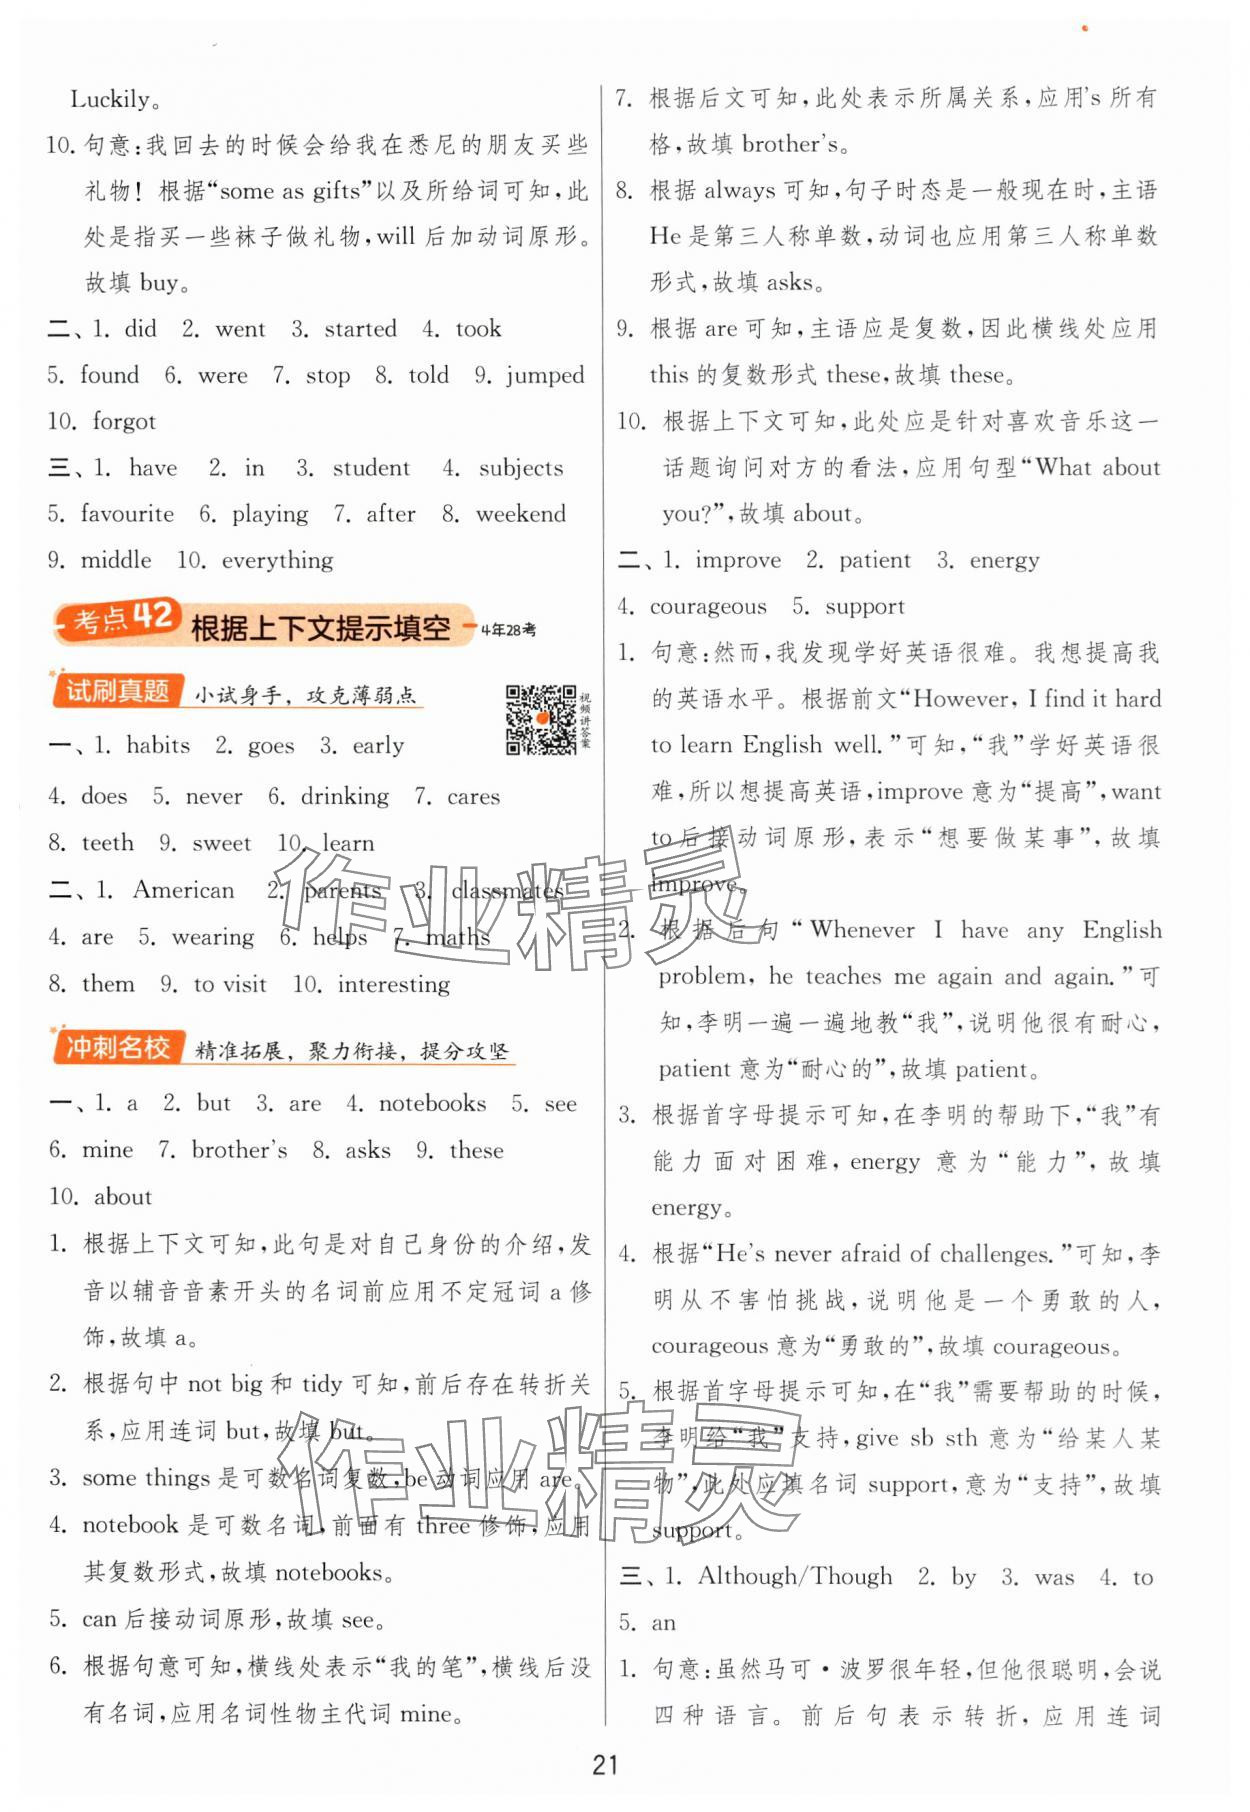 Luckily。
10. 句意:我回去的时候会给我在悉尼的朋友买些
礼物！根据“some as gifts”以及所给词可知,此
处是指买一些袜子做礼物,will 后加动词原形。
故填 buy。
二、1. did 2. went 3. started 4. took
5. found 6. were 7. stop 8. told 9. jumped
10. forgot
三、1. have 2. in 3. student 4. subjects
5. favourite 6. playing 7. after 8. weekend
9. middle 10. everything
考点42 根据上下文提示填空 4年28考
试刷真题 小试身手，攻克薄弱点
视频讲答案
一、1. habits 2. goes 3. early
4. does 5. never 6. drinking 7. cares
8. teeth 9. sweet 10. learn
二、1. American 2. parents 3. classmates
4. are 5. wearing 6. helps 7. maths
8. them 9. to visit 10. interesting
冲刺名校 精准拓展，聚力衔接，提分攻坚
一、1. a 2. but 3. are 4. notebooks 5. see
6. mine 7. brother's 8. asks 9. these
10. about
1. 根据上下文可知,此句是对自己身份的介绍,发
音以辅音音素开头的名词前应用不定冠词 a 修
饰,故填 a。
2. 根据句中 not big 和 tidy 可知,前后存在转折关
系,应用连词 but,故填 but。
3. some things 是可数名词复数,be 动词应用 are。
4. notebook 是可数名词,前面有 three 修饰,应用
其复数形式,故填 notebooks。
5. can 后接动词原形,故填 see。
6. 根据句意可知,横线处表示“我的笔”,横线后没
有名词,应用名词性物主代词 mine。
7. 根据后文可知,此处表示所属关系,应用's 所有
格,故填 brother's。
8. 根据 always 可知,句子时态是一般现在时,主语
He 是第三人称单数,动词也应用第三人称单数
形式,故填 asks。
9. 根据 are 可知,主语应是复数,因此横线处应用
this 的复数形式 these,故填 these。
10. 根据上下文可知,此处应是针对喜欢音乐这一
话题询问对方的看法,应用句型“What about
you?”,故填 about。
二、1. improve 2. patient 3. energy
4. courageous 5. support
1. 句意:然而,我发现学好英语很难。我想提高我
的英语水平。根据前文“However, I find it hard
to learn English well.”可知,“我”学好英语很
难,所以想提高英语,improve 意为“提高”,want
to 后接动词原形,表示“想要做某事”,故填
improve。
2. 根据后句“Whenever I have any English
problem, he teaches me again and again.”可
知,李明一遍一遍地教“我”,说明他很有耐心,
patient 意为“耐心的”,故填 patient。
3. 根据首字母提示可知,在李明的帮助下,“我”有
能力面对困难,energy 意为“能力”,故填
energy。
4. 根据“He's never afraid of challenges.”可知,李
明从不害怕挑战,说明他是一个勇敢的人,
courageous 意为“勇敢的”,故填 courageous。
5. 根据首字母提示可知,在“我”需要帮助的时候,
李明给“我”支持,give sb sth 意为“给某人某
物”,此处应填名词 support,意为“支持”,故填
support。
三、1. Although/Though 2. by 3. was 4. to
5. an
1. 句意:虽然马可·波罗很年轻,但他很聪明,会说
四种语言。前后句表示转折,应用连词
作业精灵
作业精灵
21